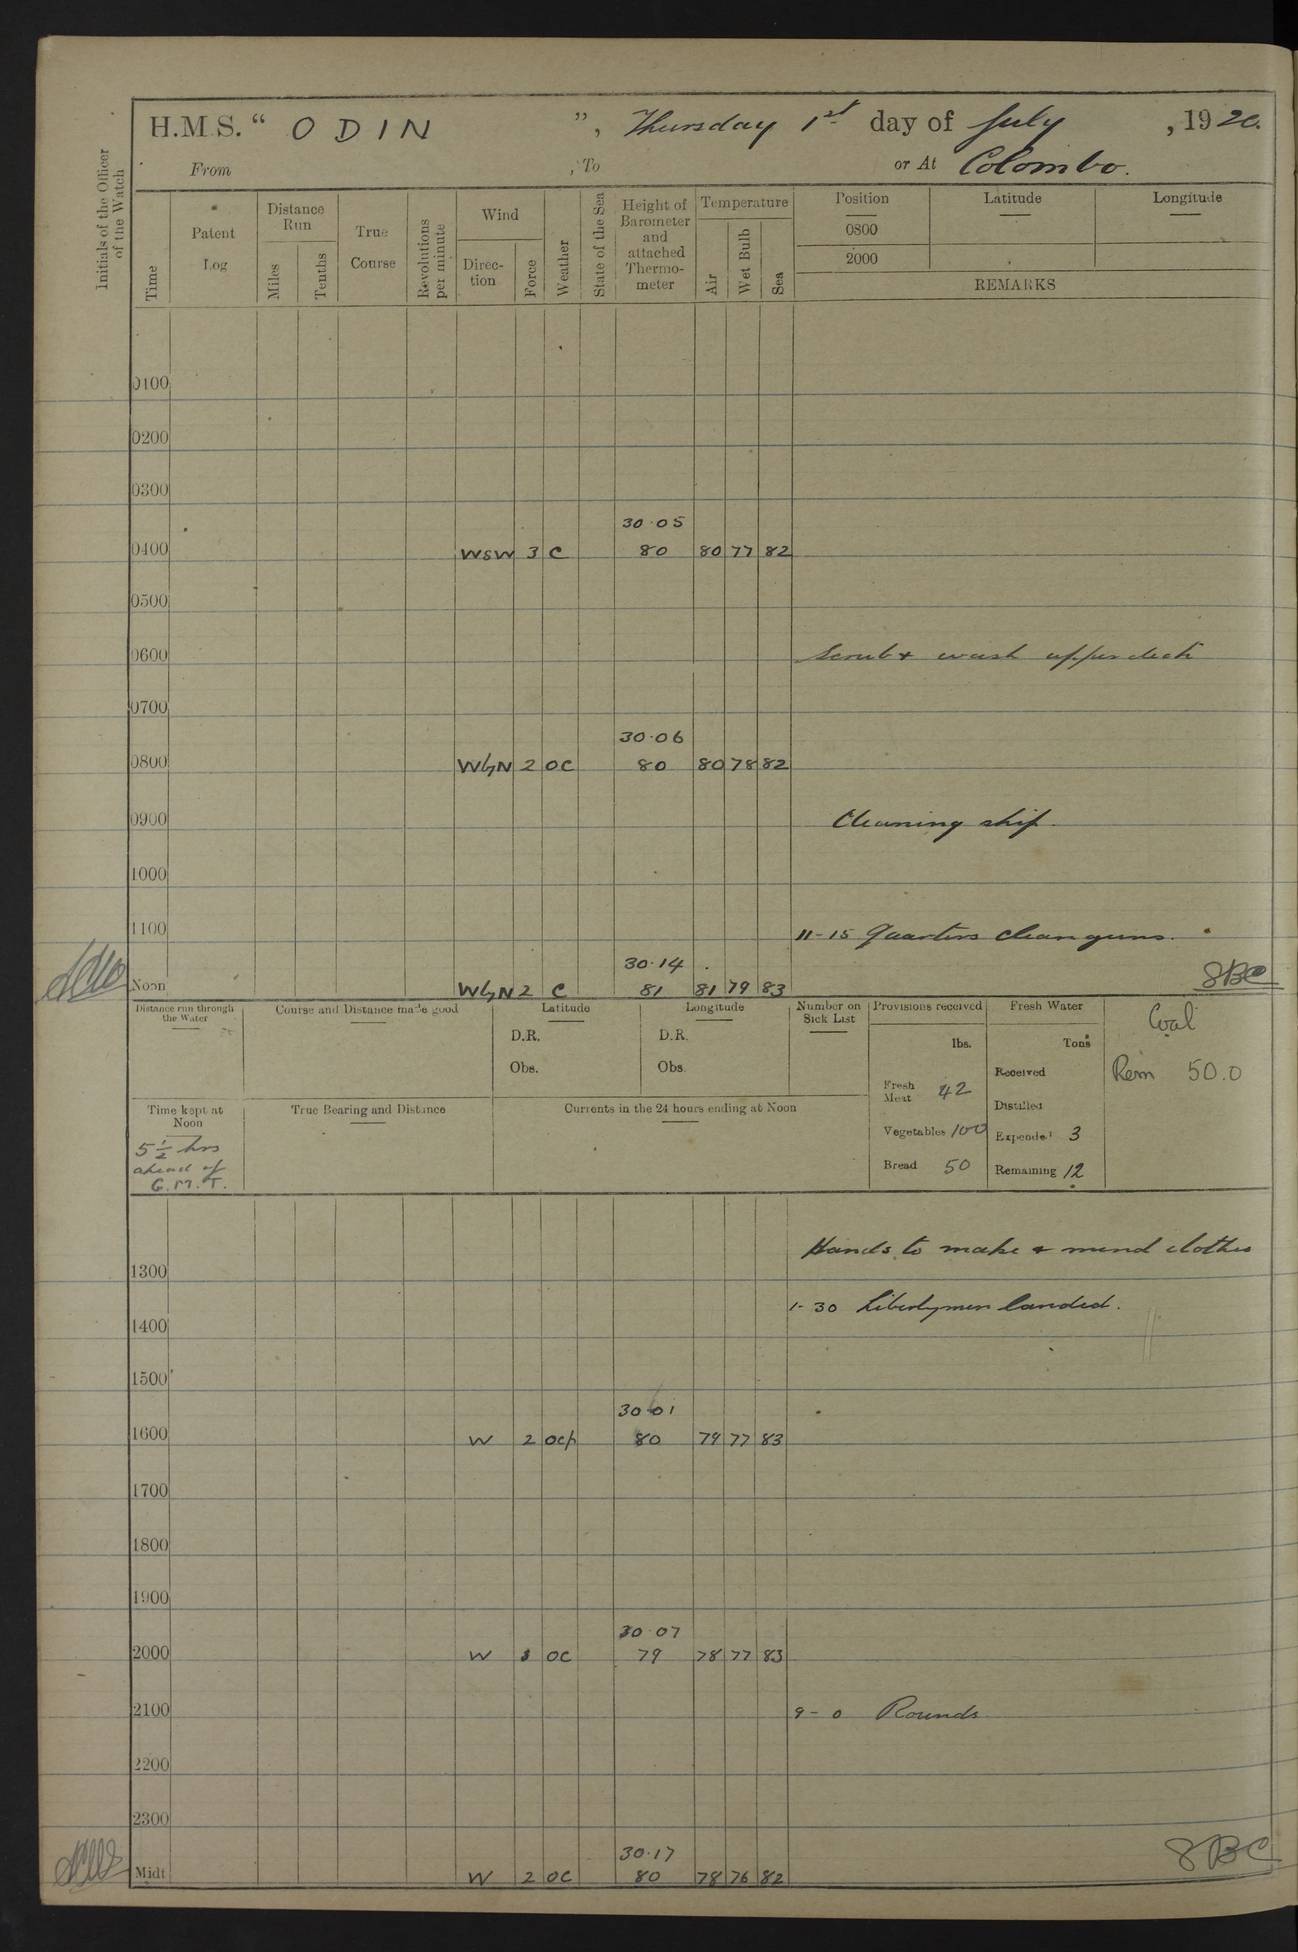 H.M.S. “ ODIN ”, Thursday 1st day of July , 1920.
From , To or At Colombo.
Initials of the Officer of the Watch
Time
Patent Log
Distance Run
Miles
Tenths
True Course
Revolutions per minute
Wind
Direc-tion
Force
Weather
State of the Sea
Height of Barometer and attached Thermo-meter
Temperature
Air
Wet Bulb
Sea
Position Latitude Longitude
0800
2000
REMARKS
0100
0200
0300
30.05
0400 WSW 3 C 80 80 77 82
0500
0600 Scrub & wash upper deck
0700
30.06
0800 WbyN 2 OC 80 80 78 82
0900 Cleaning ship.
1000
1100 11-15 Quarters clean guns.
30.14
Noon WbyN 2 C 81 81 79 83
Distance run through the Water
Course and Distance made good
Latitude
D.R.
Obs.
Longitude
D.R.
Obs.
Number on Sick List
Provisions received
lbs.
Fresh Meat 42
Vegetables 100
Bread 50
Fresh Water
Tons
Received
Distilled
Expended 3
Remaining 12
Coal
Rem 50.0
Time kept at Noon
5½ hrs
ahead of
G.M.T.
True Bearing and Distance
Currents in the 24 hours ending at Noon
Hands to make & mend clothes
1300
1-30 Libertymen landed.
1400
1500
30.01
1600 W 2 ocp 80 79 77 83
1700
1800
1900
30.07
2000 W OC 79 78 77 83
2100 9-0 Rounds
2200
2300
30.17
Midt W 2 OC 80 78 76 82